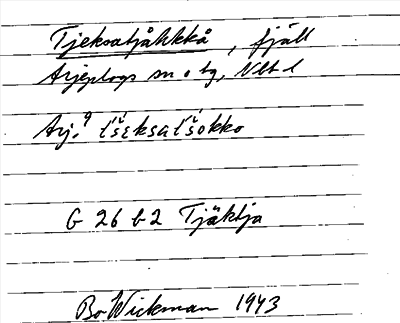 Tjeksatjåhkkå, fjäll
Arjeplogs sn o tg, Nbt l
Arj. t́šeksat́šokko
G 26 b2 Tjäktja
Bo Wickman 1943